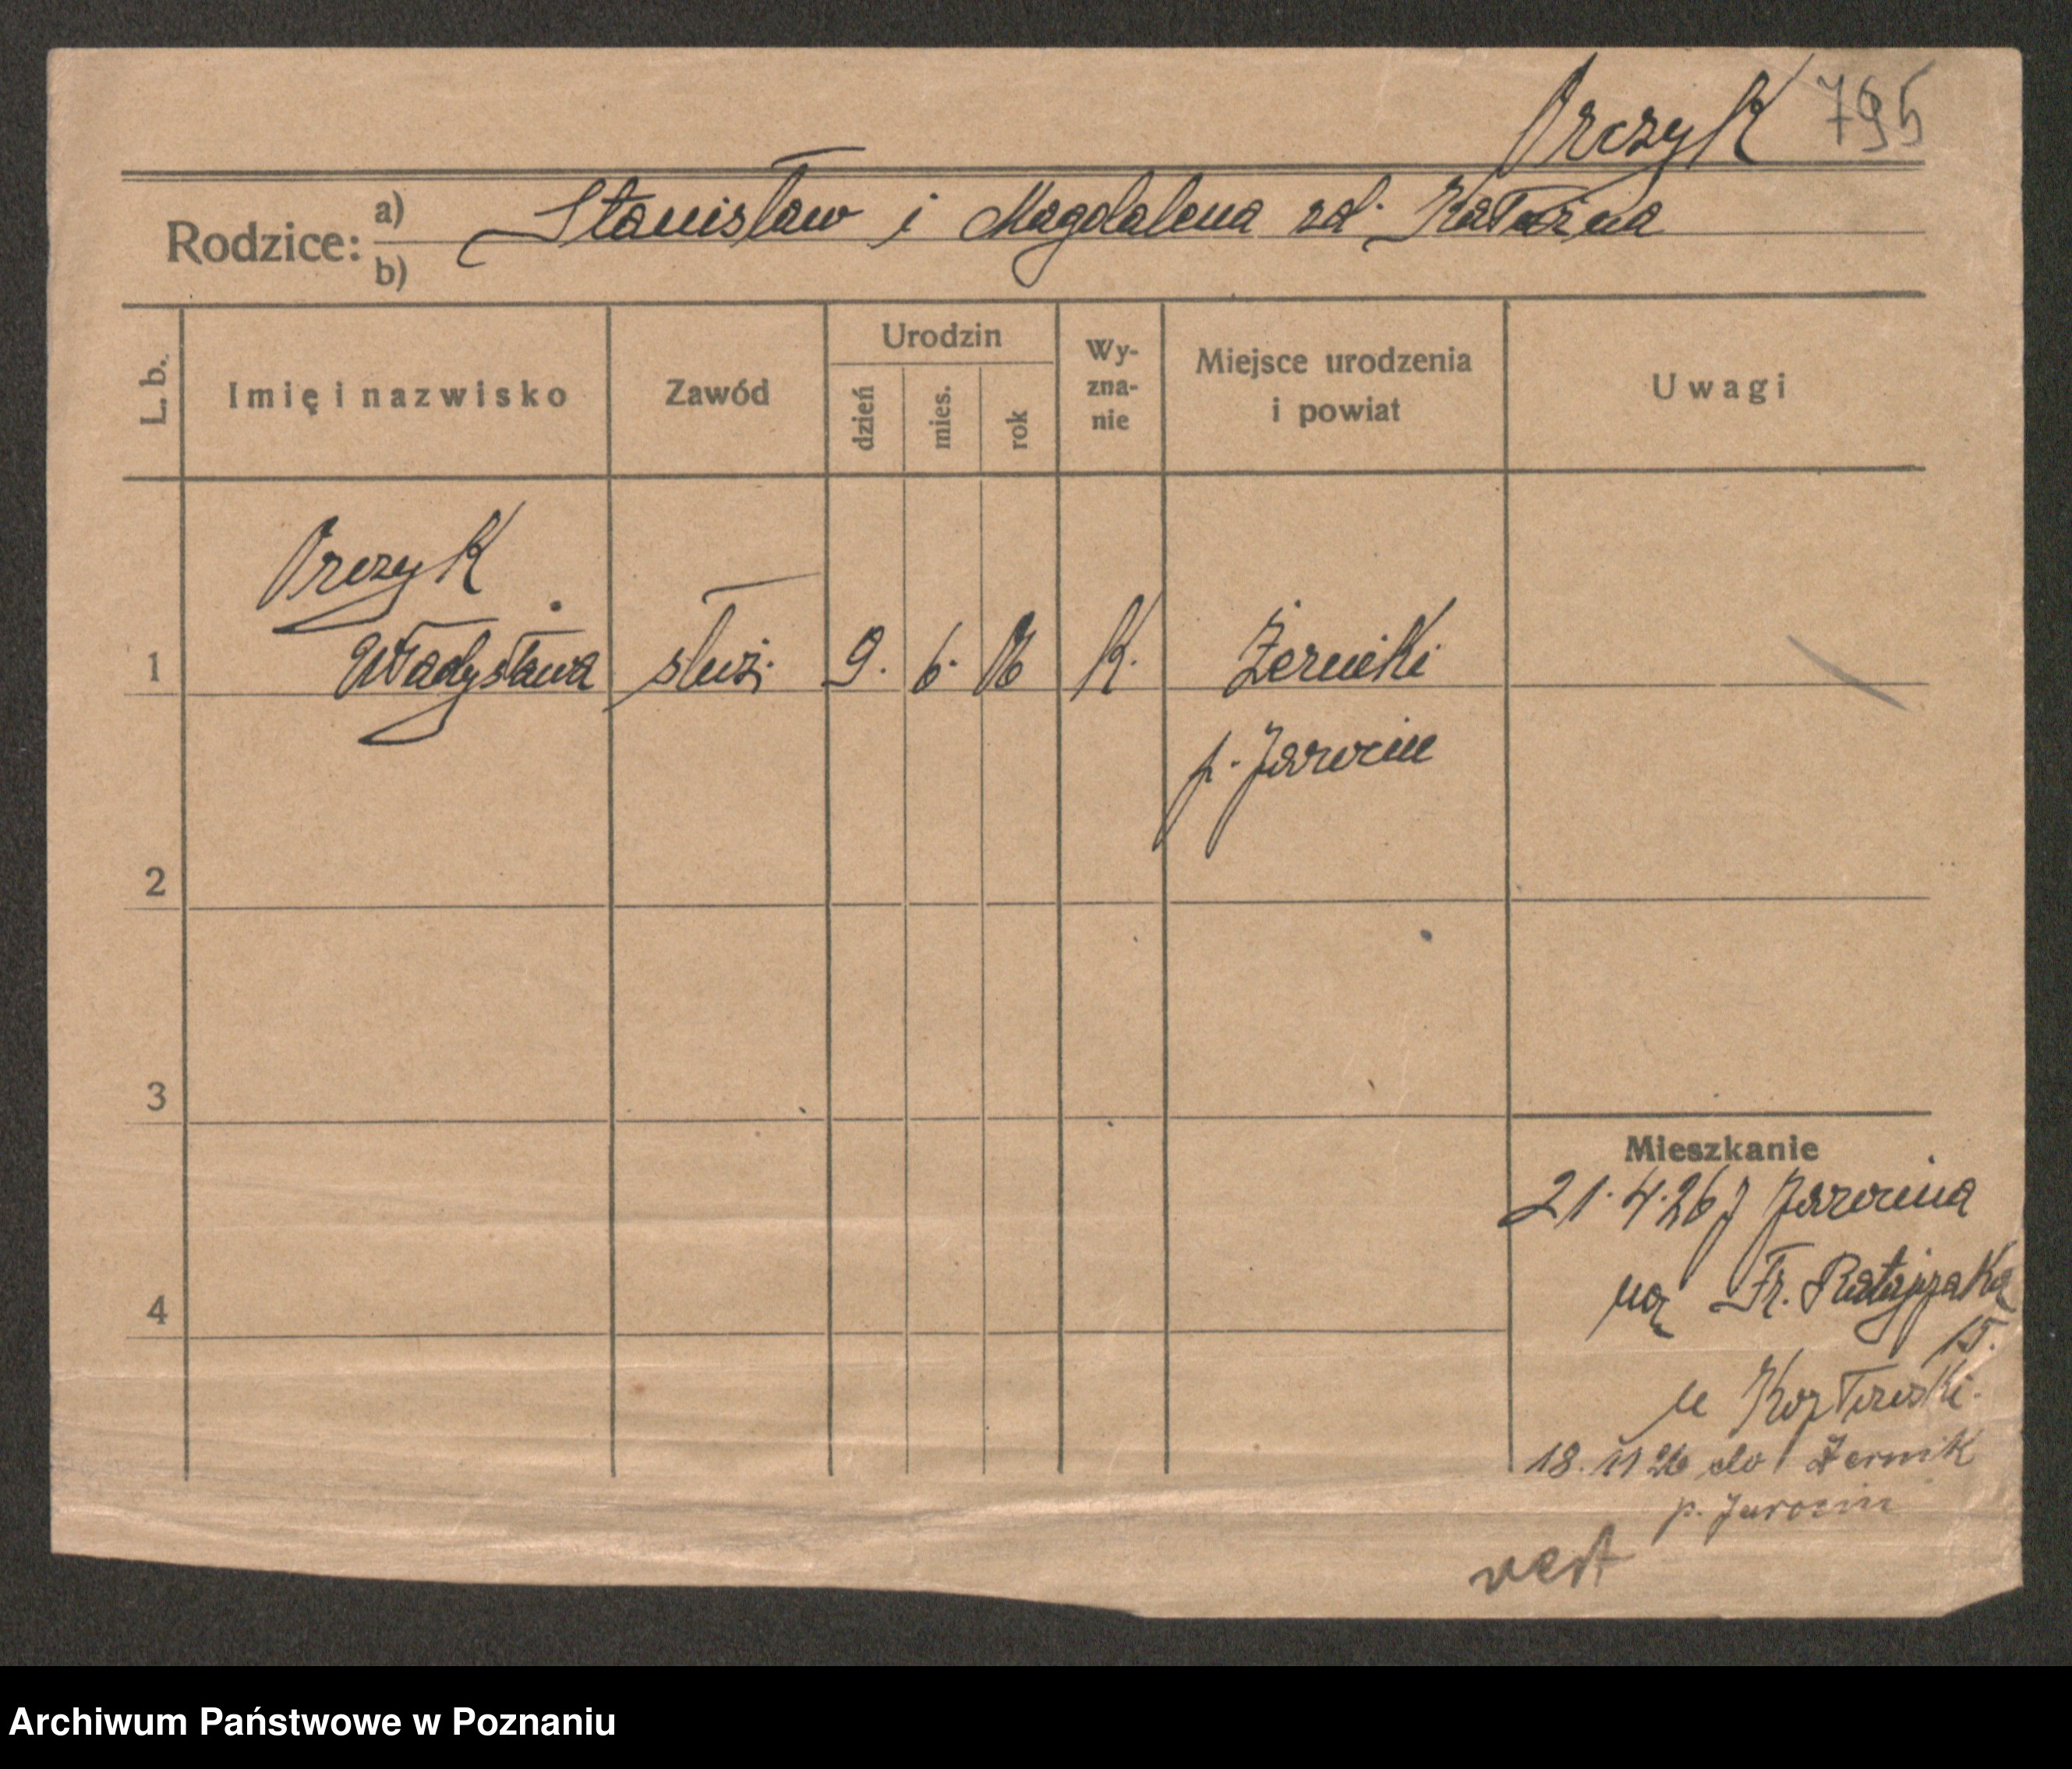 Orczyk 795
Rodzice: a) b) Stanisław i Magdalena zd.
L. b.
Imię i nazwisko
Zawód
Urodzin
dzień
mies.
rok
Wy-
zna-
nie
Miejsce urodzenia
i powiat
Uwagi
Orczyk
1 Władysława służ. 9. 6. K. Żerniki
p. Jarocin
2
3
4
Mieszkanie
21.4.26 z Jarocina
na Fr. Ratajczaka
15.
u
18.11 26 do Żernik
p. Jarocin
Archiwum Państwowe w Poznaniu